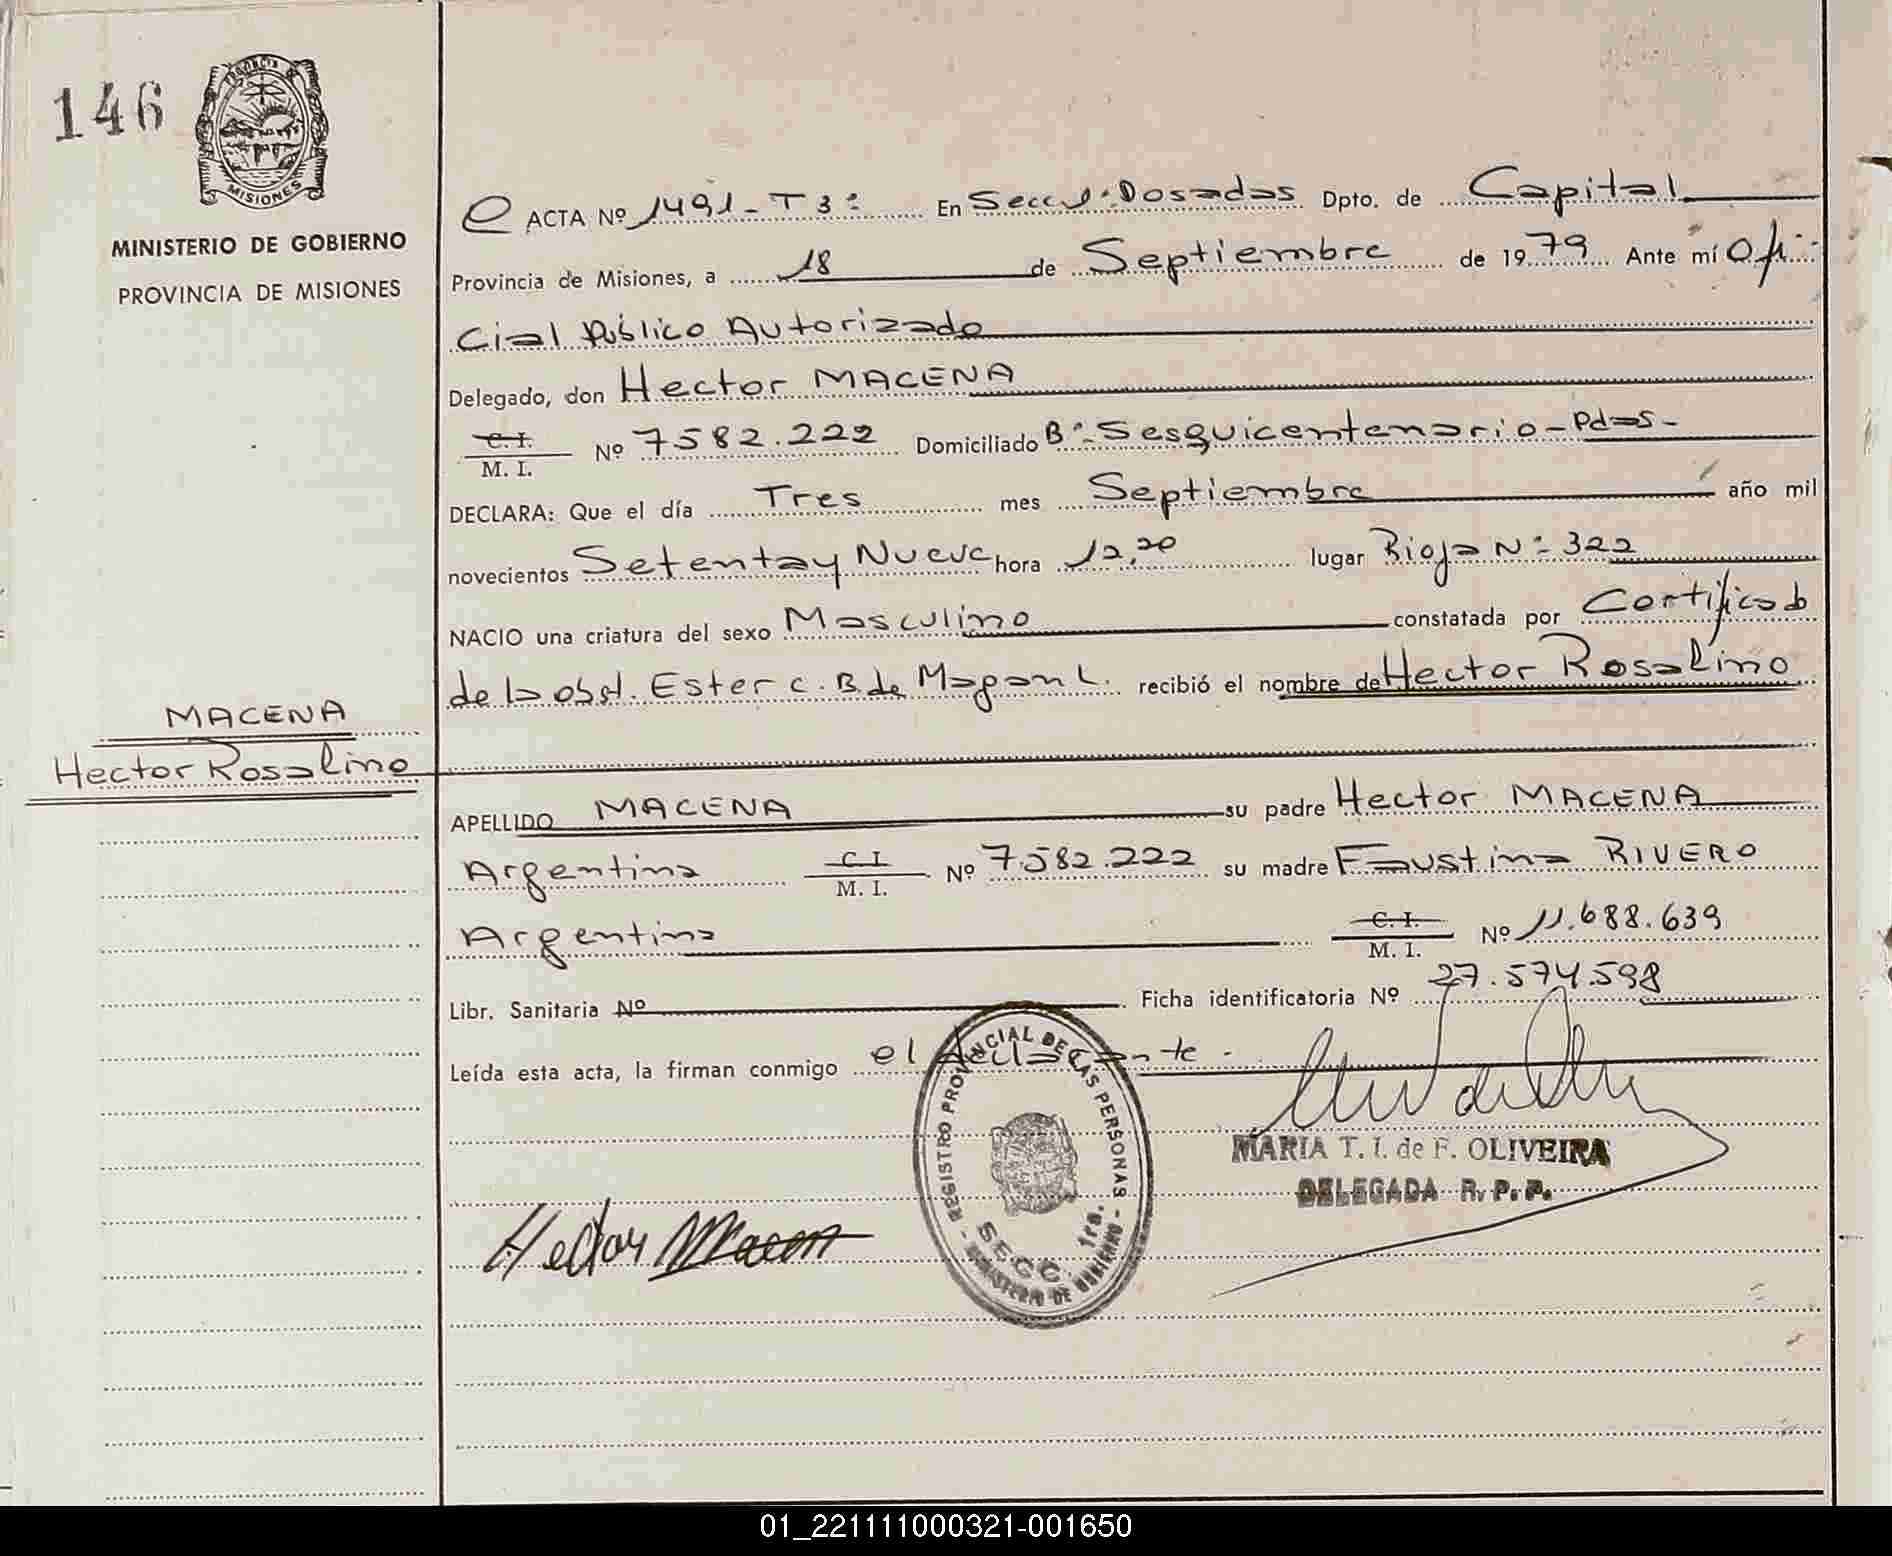 146
PROVINCIA DE
MISIONES
MINISTERIO DE GOBIERNO
PROVINCIA DE MISIONES
ACTA Nº 1491 - T 3º En Secc 1º Posadas Dpto. de Capital
Provincia de Misiones, a 18 de Septiembre de 1979 Ante mí Ofi
cial Público Autorizado
Delegado, don Hector MACENA
C. I.
M. I. Nº 7582.222 Domiciliado Bº Sesquicentenario - Pdas -
DECLARA: Que el día Tres mes Septiembre año mil
novecientos Setenta y Nueve hora 12,20 lugar Rioja Nº 322
NACIO una criatura del sexo Masculino constatada por Certificado
de la obst. Ester C. B. de recibió el nombre de Hector Rosalino
MACENA
Hector Rosalino
APELLIDO MACENA su padre Hector MACENA
Argentina C. I.
M. I. Nº 7.582.222 su madre Faustina RIVERO
Argentina C. I.
M. I. Nº 11.688.639
Libr. Sanitaria Nº Ficha identificatoria Nº 27.574.598
Leída esta acta, la firman conmigo el declarante -
- REGISTRO PROVINCIAL DE LAS PERSONAS -
SECC. 1ra.
MINISTERIO DE GOBIERNO
MARIA T. I. de F. OLIVEIRA
DELEGADA R. P. P.
Hector Macena
01_221111000321-001650